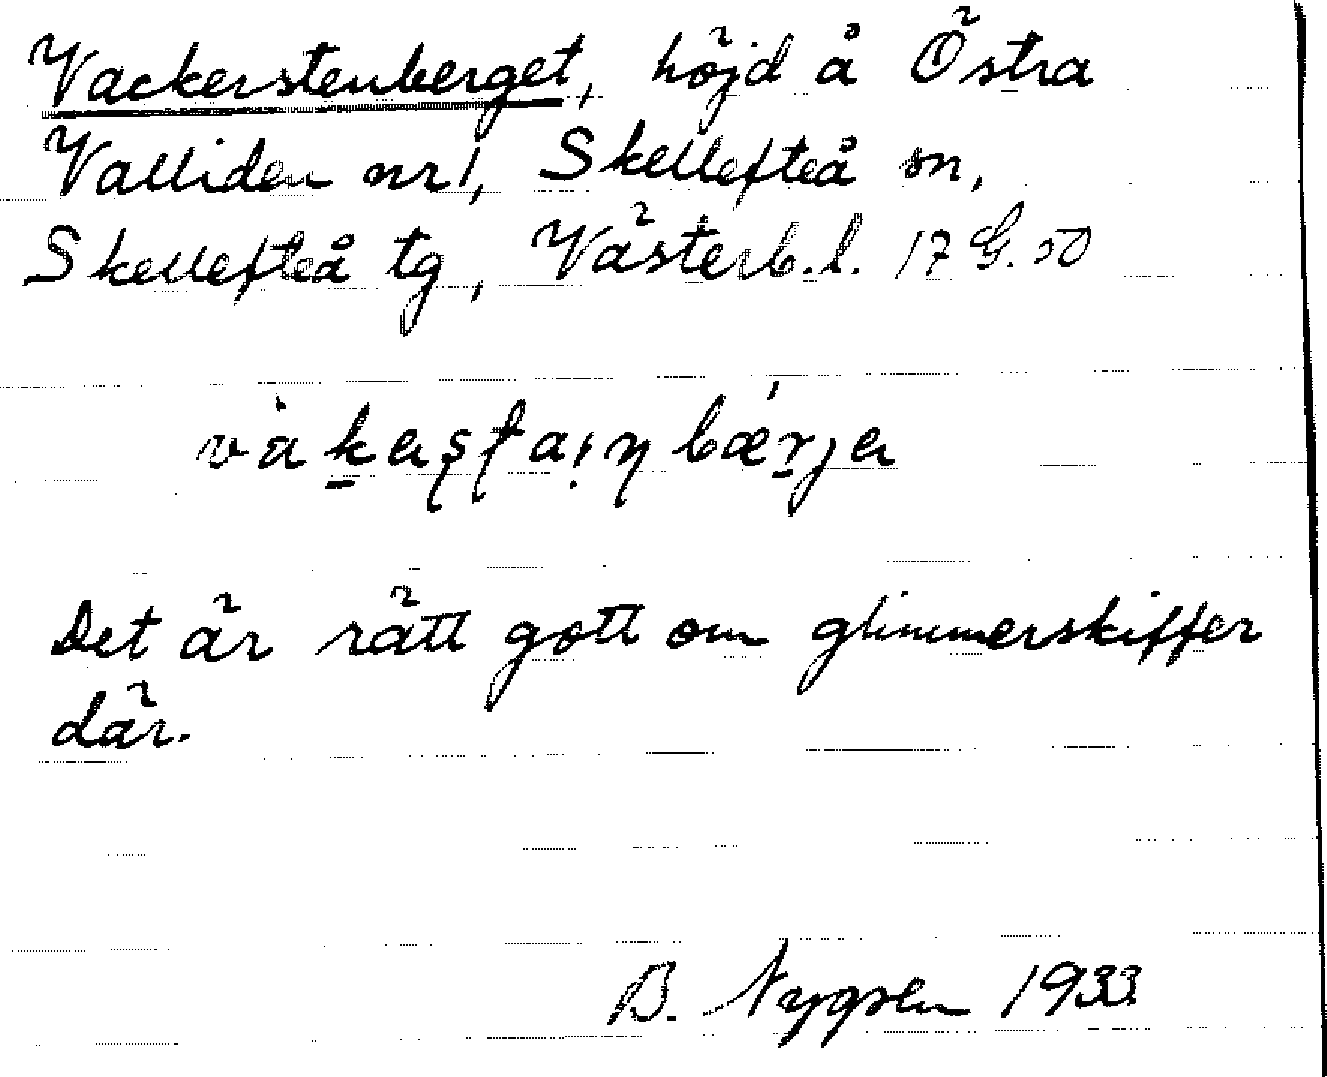 Vackerstenberget, höjd å Östra
Valliden nr 1, Skellefteå sn,
Skellefteå tg, Västerb. l. 17 G. 50
Det är rätt gott om glimmerskiffer
där.
B. 1933